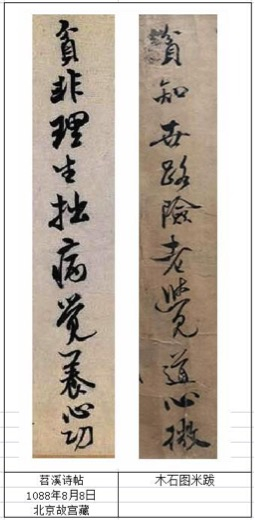 貧非理生拙病覺養心功
貧知世路險老覺道心微
苕溪诗帖
木石图米跋
1088年8月8日
北京故宫藏